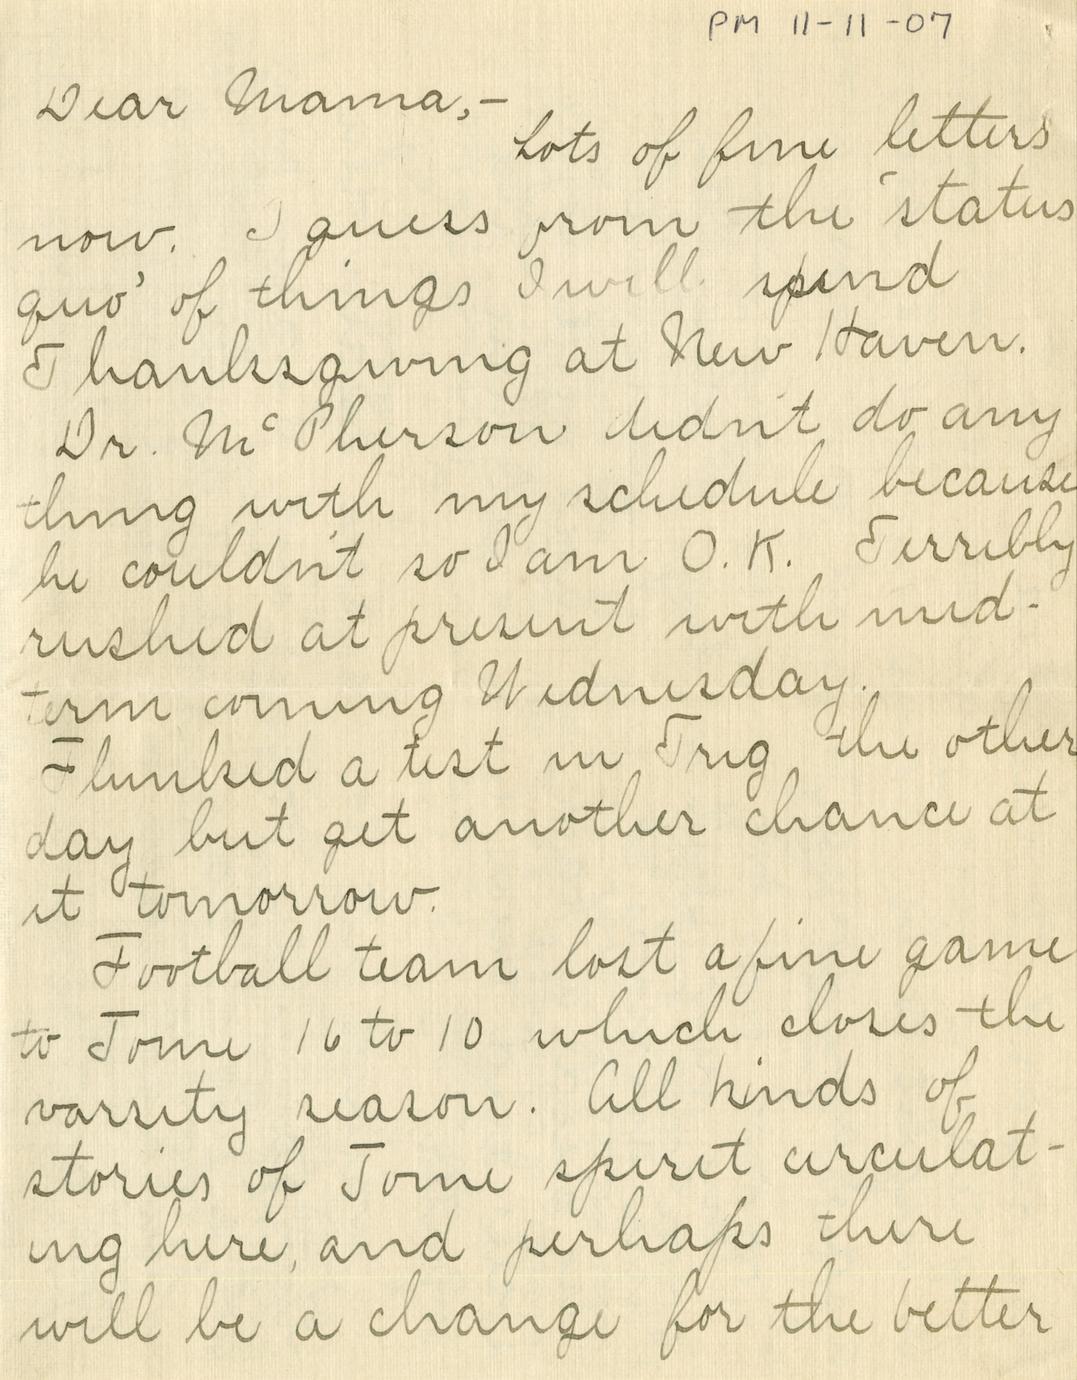 PM 11-11-07
Dear Mama,-
Lots of fine letters
now. I guess from the 'status
quo' of things I will spend
Thanksgiving at New Haven.
Dr. McPherson didn't do any
thing with my schedule because
he couldn't so I am O.K. Terribly
rushed at present with mid-
term coming Wednesday.
Flunked a test in Trig the other
day but get another chance at
it tomorrow.
Football team lost a fine game
to Tome 16 to 10 which closes the
varsity season. All kinds of
stories of Tome spirit circulat-
ing here, and perhaps there
will be a change for the better